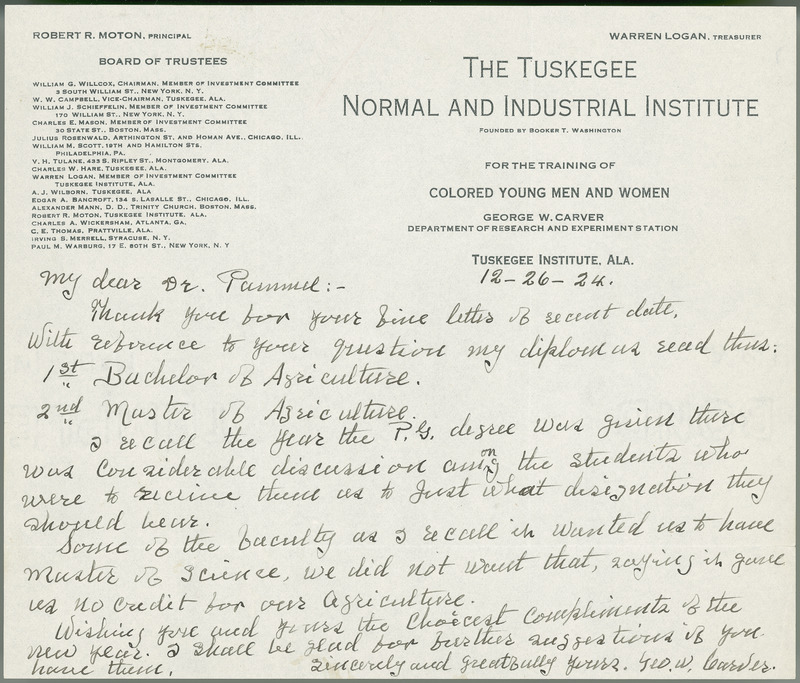 ROBERT R. MOTON, PRINCIPAL
WARREN LOGAN, TREASURER
BOARD OF TRUSTEES
WILLIAM G. WILLCOX, CHAIRMAN, MEMBER OF INVESTMENT COMMITTEE
3 SOUTH WILLIAM ST., NEW YORK, N. Y.
W. W. CAMPBELL, VICE-CHAIRMAN, TUSKEGEE, ALA.
WILLIAM J. SCHIEFFELIN, MEMBER OF INVESTMENT COMMITTEE
170 WILLIAM ST., NEW YORK, N. Y.
CHARLES E. MASON, MEMBER OF INVESTMENT COMMITTEE
30 STATE ST., BOSTON, MASS.
JULIUS ROSENWALD, ARTHINGTON ST. AND HOMAN AVE., CHICAGO, ILL.
WILLIAM M. SCOTT, 19TH AND HAMILTON STS.
PHILADELPHIA, PA.
V. H. TULANE, 433 S. RIPLEY ST., MONTGOMERY, ALA.
CHARLES W. HARE, TUSKEGEE, ALA.
WARREN LOGAN, MEMBER OF INVESTMENT COMMITTEE
TUSKEGEE INSTITUTE, ALA.
A. J. WILBORN, TUSKEGEE, ALA
EDGAR A. BANCROFT, 134 S. LASALLE ST., CHICAGO, ILL.
ALEXANDER MANN, D. D., TRINITY CHURCH, BOSTON, MASS.
ROBERT R. MOTON, TUSKEGEE INSTITUTE, ALA.
CHARLES A. WICKERSHAM, ATLANTA, GA.
C. E. THOMAS, PRATTVILLE, ALA.
IRVING S. MERRELL, SYRACUSE, N. Y.
PAUL M. WARBURG, 17 E. 80TH ST., NEW YORK, N. Y
THE TUSKEGEE
NORMAL AND INDUSTRIAL INSTITUTE
FOUNDED BY BOOKER T. WASHINGTON
FOR THE TRAINING OF
COLORED YOUNG MEN AND WOMEN
GEORGE W. CARVER
DEPARTMENT OF RESEARCH AND EXPERIMENT STATION
TUSKEGEE INSTITUTE, ALA.
12-26-24.
My dear Dr. Pammel:-
Thank you for your fine letter of recent date.
With reference to your question my diplomas read thus:
1st Bachelor of Agriculture.
2nd Master of Agriculture.
I recall the year the P.G. degree was given there
was considerable discussion among the students who
were to recieve them as to Just what designation they
should bear.
Some of the faculty as I recall it wanted us to have
Master of Science, we did not want that, saying it gave
us no credit for our Agriculture.
Wishing you and yours the Choicest Compliments of the
new year. I shall be glad for further suggestions if you
have them.
Sincerely and greatfully yours. Geo. W. Carver.